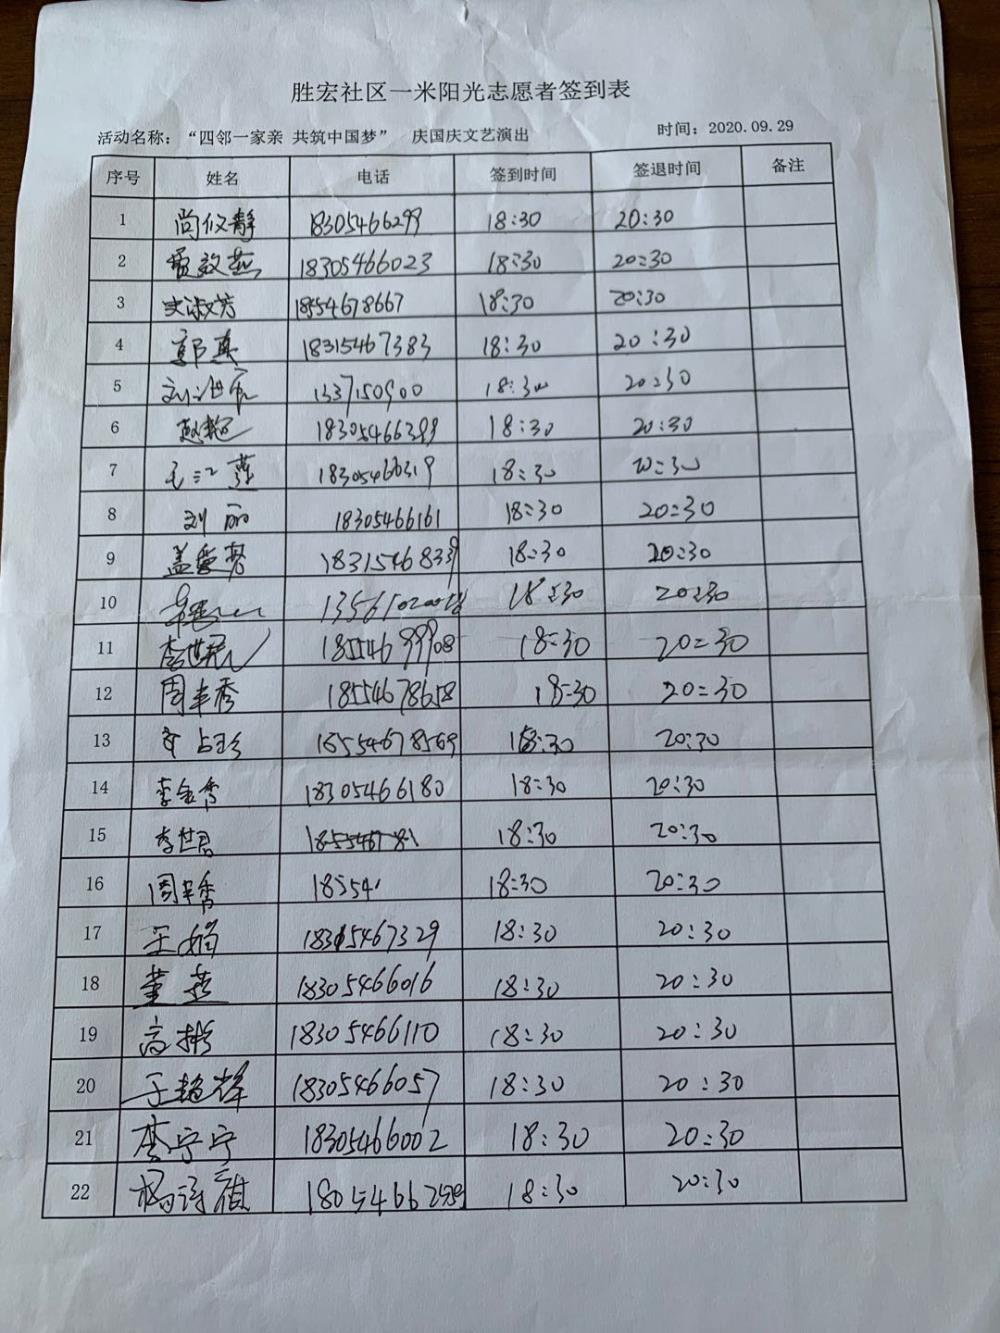 胜宏社区一米阳光志愿者签到表
活动名称：“四邻一家亲 共筑中国梦” 庆国庆文艺演出 时间：2020.09.29
序号 姓名 电话 签到时间 签退时间 备注
1 尚仪静 18305466299 18:30 20:30
2 18305466023 18:30 20:30
3 18554678667 18:30 20:30
4 郭真 18315467383 18:30 20:30
5 18:30 20:30
6 赵艳 18305466399 18:30 20:30
7 18305466319 18:30 20:30
8 刘丽 18305466161 18:30 20:30
9 18315468339 18:30 20:30
10 18:30 20:30
11 李世君 18554699908 18:30 20:30
12 周丰秀 18554678658 18:30 20:30
13 15554678569 18:30 20:30
14 李金秀 18305466180 18:30 20:30
15 李世君 18:30 20:30
16 18554 18:30 20:30
17 王娟 18305467329 18:30 20:30
18 董燕 18305466016 18:30 20:30
19 高彬 18305466110 18:30 20:30
20 于艳辉 18305466057 18:30 20:30
21 李宁宁 18305466002 18:30 20:30
22 杨诗祺 18:30 20:30